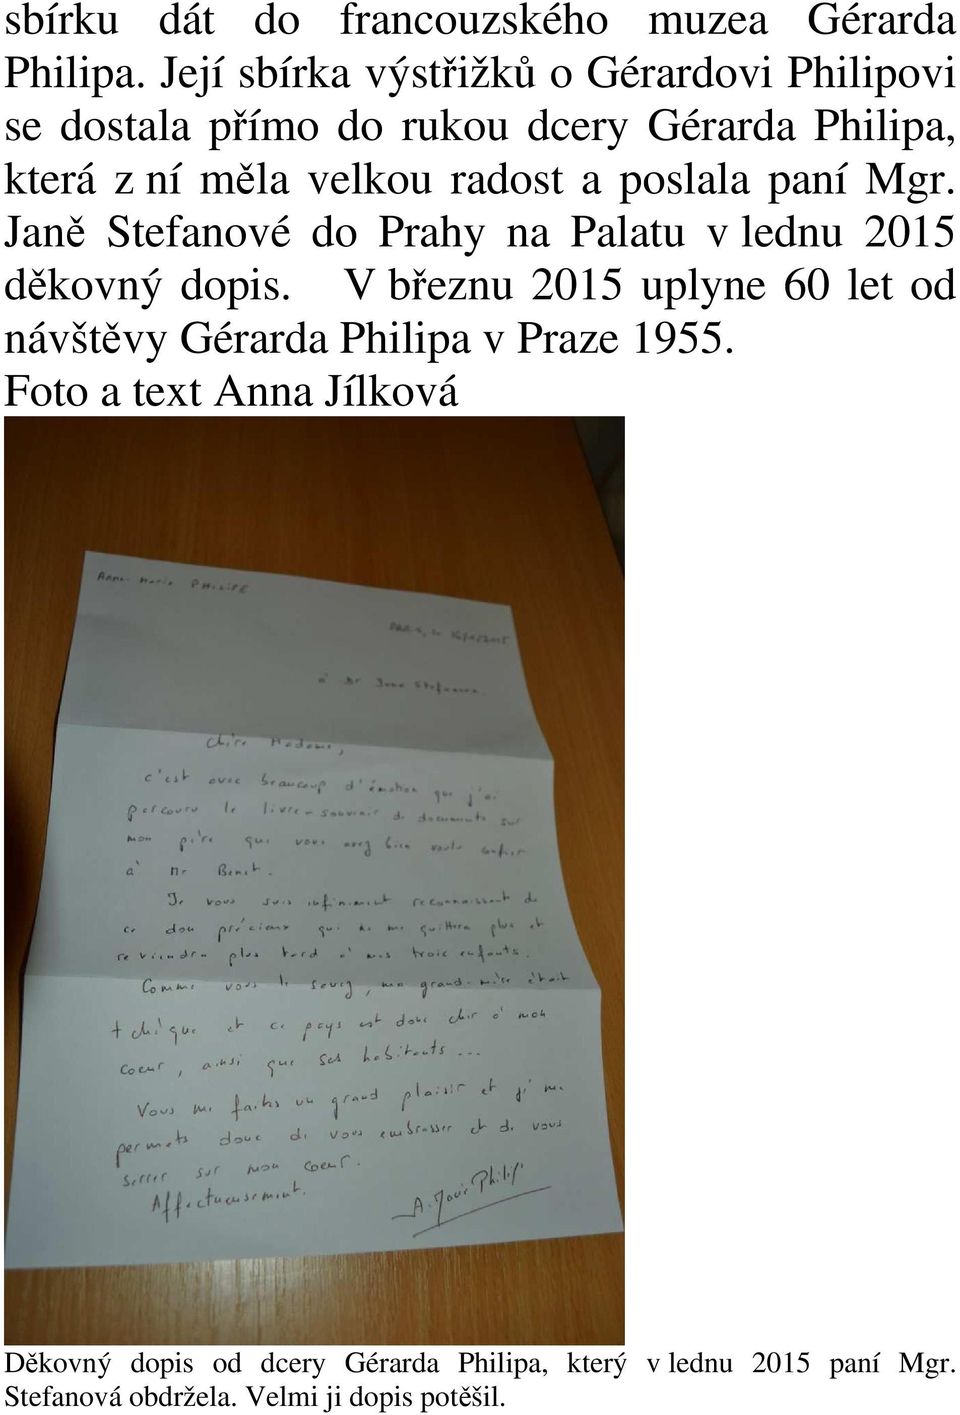 sbírku dát do francouzského muzea Gérarda
Philipa. Její sbírka výstřižků o Gérardovi Philipovi
se dostala přímo do rukou dcery Gérarda Philipa,
která z ní měla velkou radost a poslala paní Mgr.
Janě Stefanové do Prahy na Palatu v lednu 2015
děkovný dopis. V březnu 2015 uplyne 60 let od
návštěvy Gérarda Philipa v Praze 1955.
Foto a text Anna Jílková
Anne-Marie PHILIPE
PARIS, le
à Dr Jana Stefanova.
Chère Madame,
c'est avec beaucoup d'émotion que j'ai
parcouru le livre-souvenir de documents sur
mon père que vous avez bien voulu confier
à Mr Benet.
Je vous suis infiniment reconnaissante de
ce don précieux qui ne me quittera plus et
reviendra plus tard à mes trois enfants.
Comme vous le savez, ma grand-mère était
tchèque et ce pays est donc cher à mon
coeur, ainsi que ses habitants...
Vous me faites un grand plaisir et je me
permets donc de vous embrasser et de vous
serrer sur mon coeur.
Affectueusement.
A. Marie Philipe
Děkovný dopis od dcery Gérarda Philipa, který v lednu 2015 paní Mgr.
Stefanová obdržela. Velmi ji dopis potěšil.